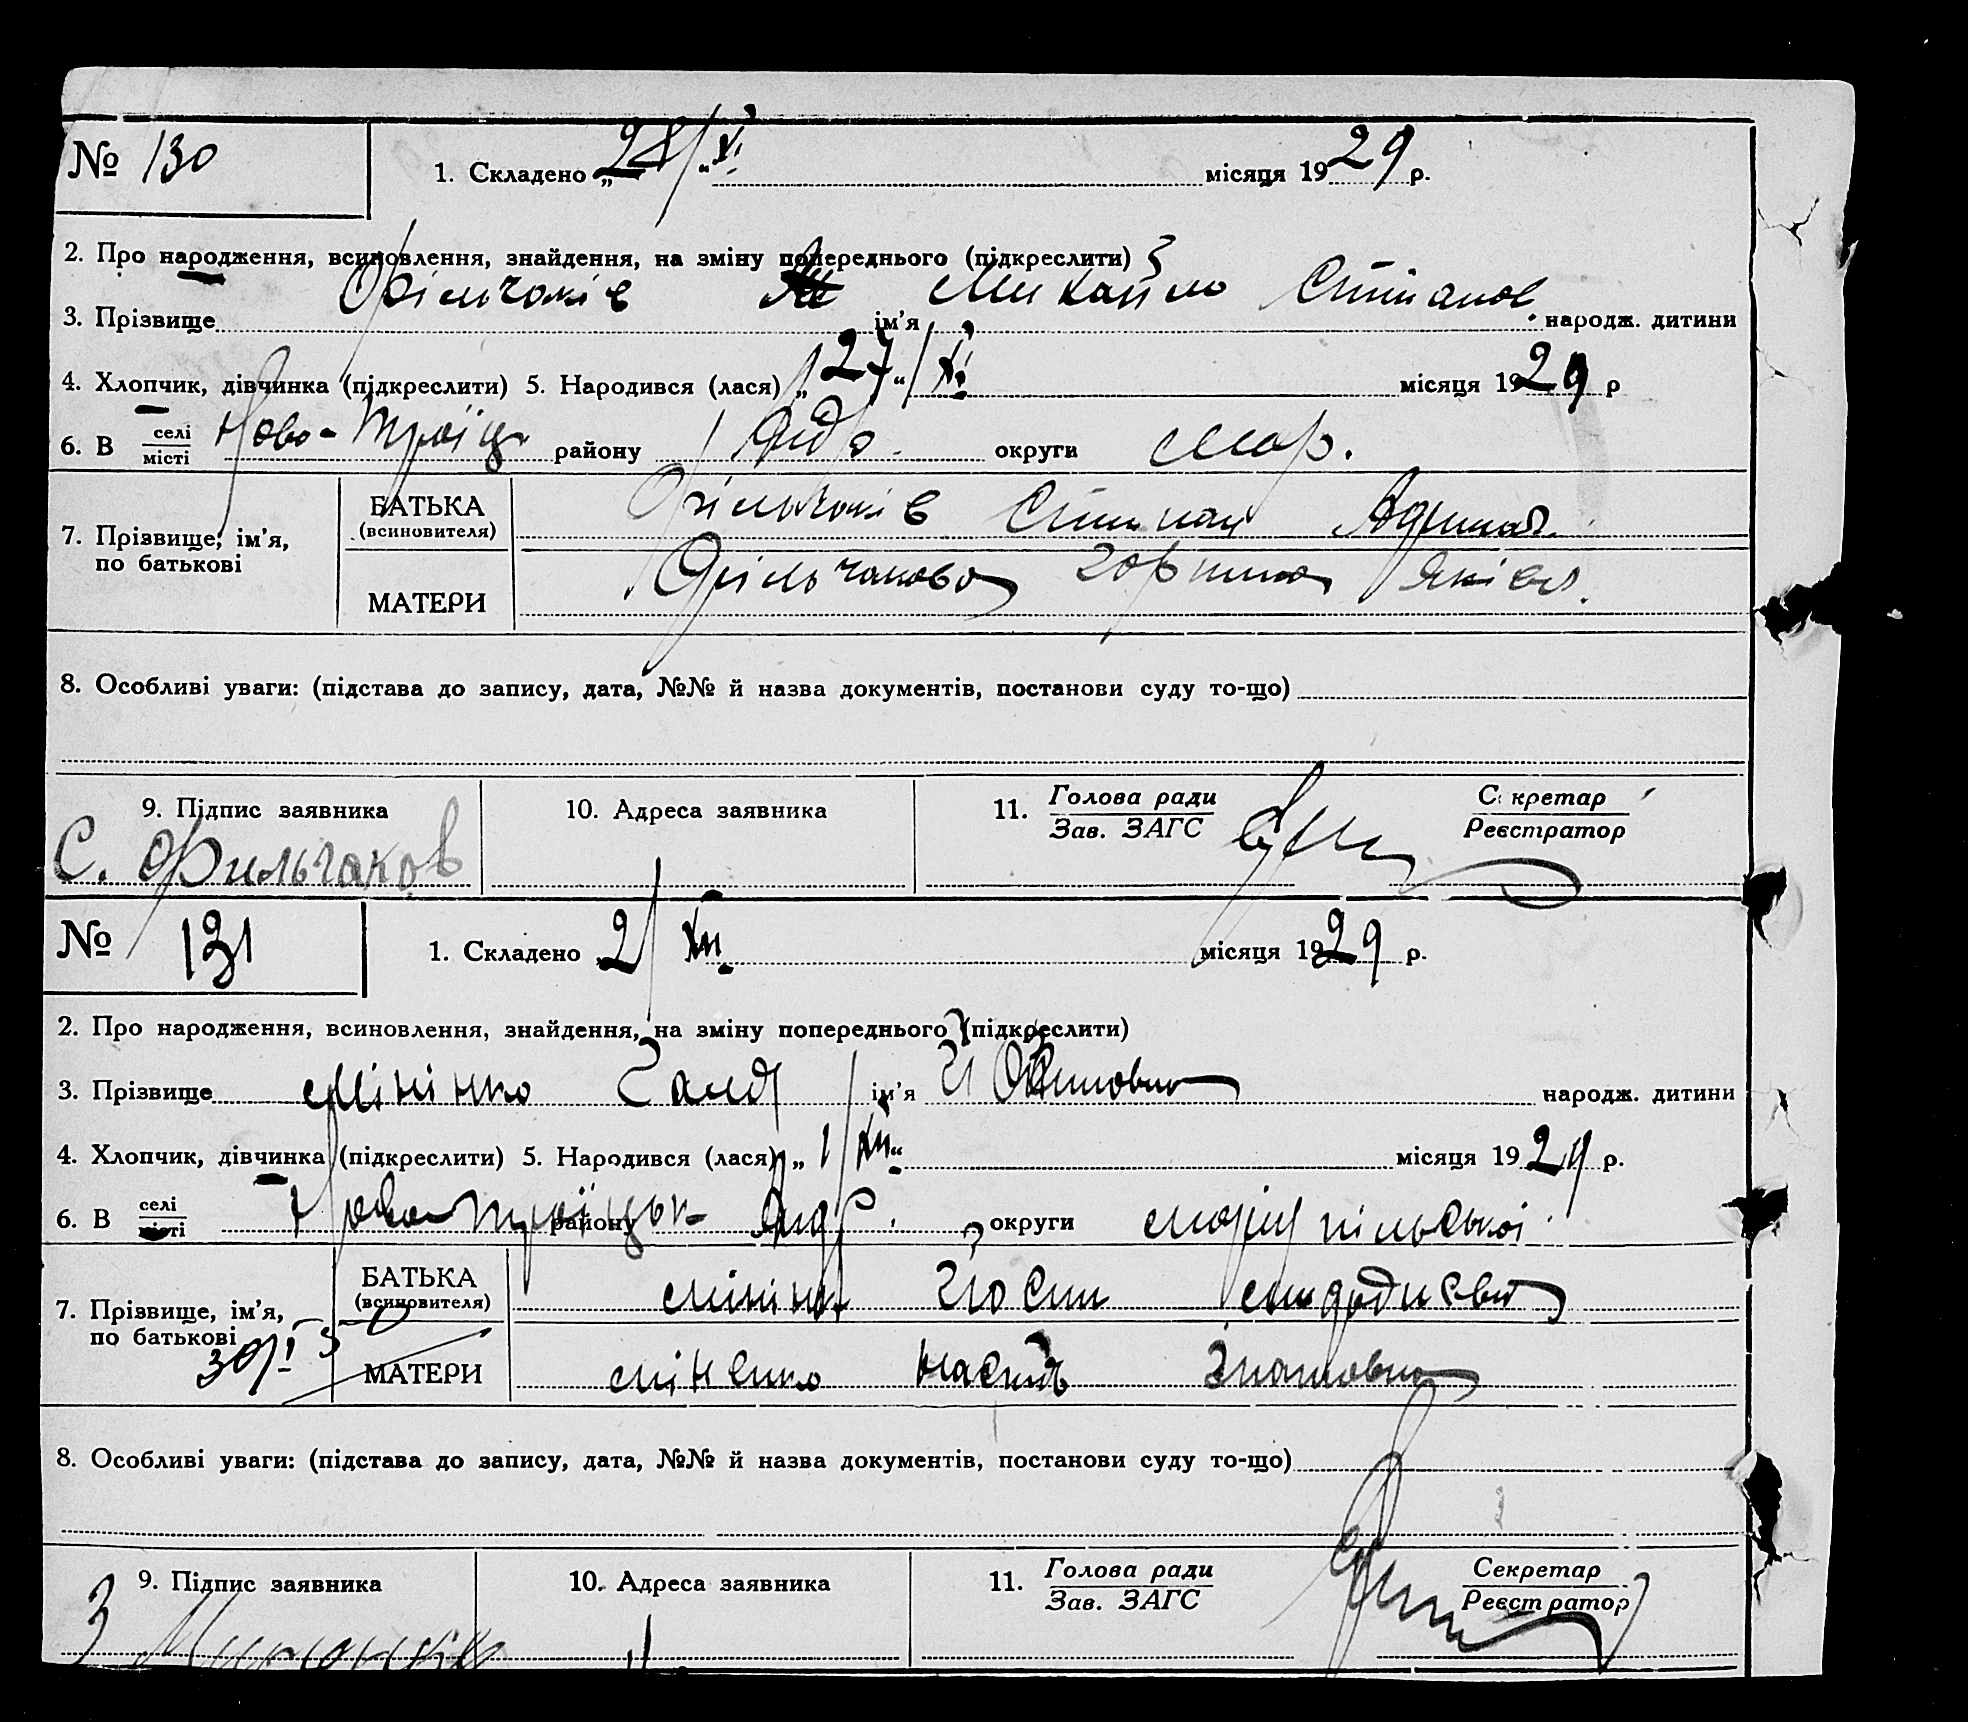 № 130 1. Складено „28/XI“ місяця 1929 р.
2. Про народження, всиновлення, знайдення, на зміну попереднього (підкреслити)
3. Прізвище Фільчаків ім’я Михайло Степанов. народж. дитини
4. Хлопчик, дівчинка (підкреслити) 5. Народився (лася) „27“/XI місяця 1929 р
6. В селі/місті Ново-Троїц. району округи Мар.
7. Прізвище, ім’я, по батькові
БАТЬКА (всиновителя) Фільчаків Степан
МАТЕРИ Фільчакова Яківл.
8. Особливі уваги: (підстава до запису, дата, №№ й назва документів, постанови суду то-що)
9. Підпис заявника 10. Адреса заявника 11. Голова ради/Зав. ЗАГС Секретар/Реєстратор
С. Фильчаков
№ 131 1. Складено 2/XII місяця 1929 р.
2. Про народження, всиновлення, знайдення, на зміну попереднього (підкреслити)
3. Прізвище Міненко ім’я народж. дитини
4. Хлопчик, дівчинка (підкреслити) 5. Народився (лася) „1/XII“ місяця 1929 р.
6. В селі/місті Ново-Троїцьк. району округи Маріупільської
7. Прізвище, ім’я, по батькові
БАТЬКА (всиновителя) Йосип
МАТЕРИ Міненко Настя
8. Особливі уваги: (підстава до запису, дата, №№ й назва документів, постанови суду то-що)
9. Підпис заявника 10. Адреса заявника 11. Голова ради/Зав. ЗАГС Секретар/Реєстратор